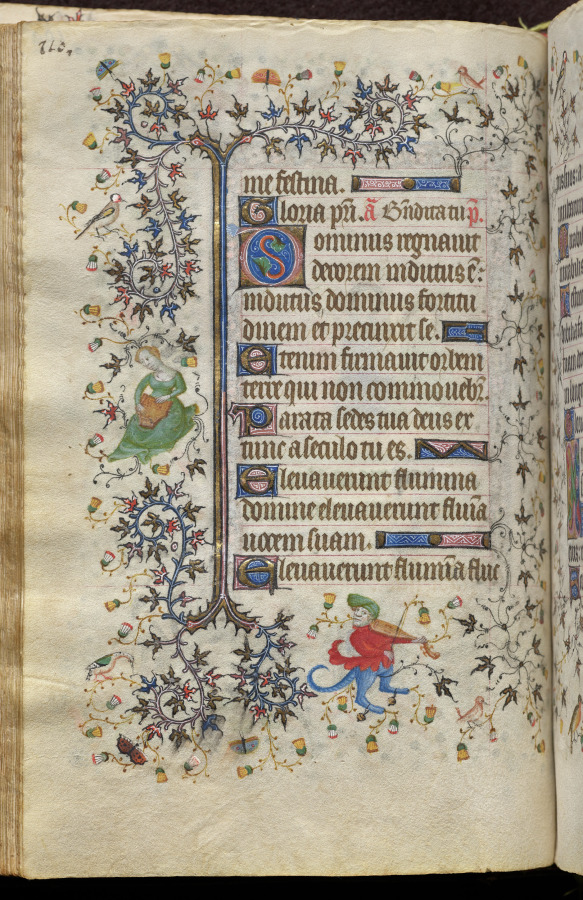 me festina.
Gloria pri. a Bndicta tu. p.
Dominus regnauit
decorem indutus e:
indutus dominus fortitu
dinem et precinxit se.
Etenim firmauit orbem
terre qui non commouebr.
Parata sedes tua deus ex
tunc a seculo tu es.
Eleuauerunt flumina
domine eleuauerunt flumina
uocem suam.
Eleuauerunt flumina fluc